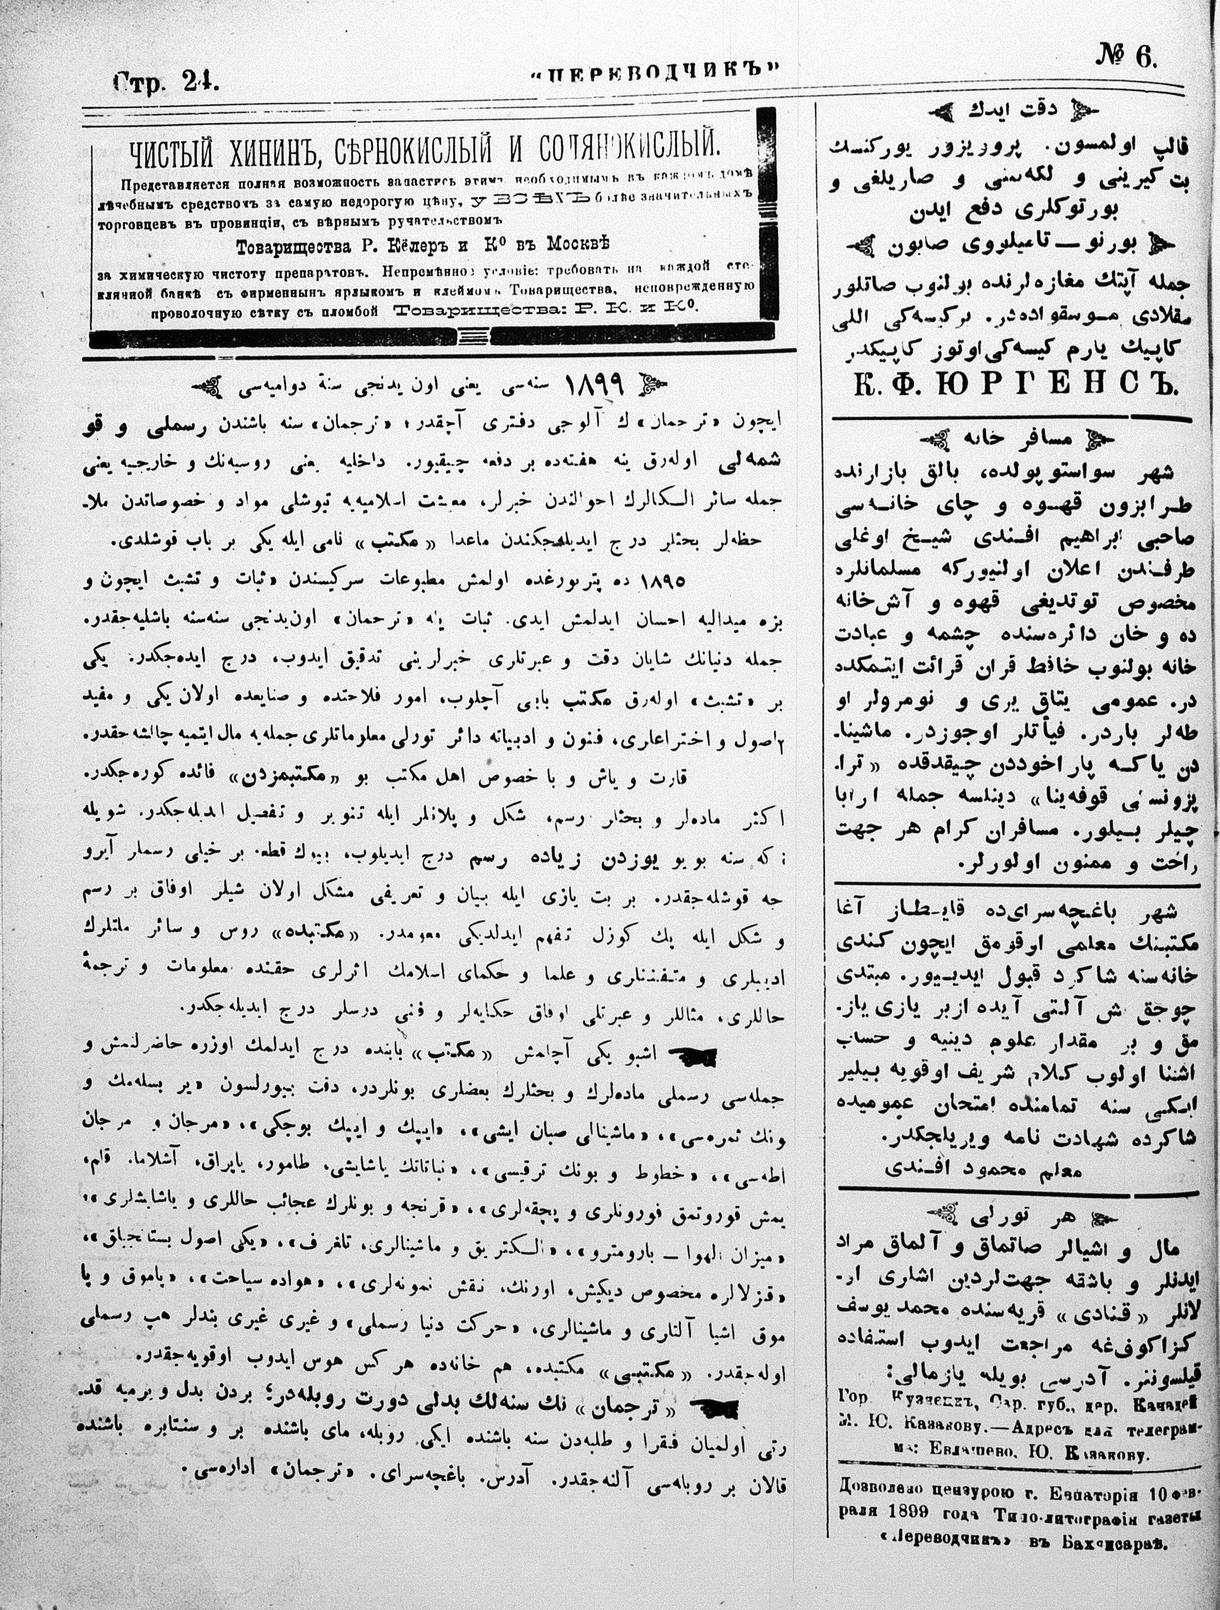 Стр. 24.
“ПЕРЕВОДЧИКЪ”
№ 6.
ЧИСТЫЙ ХИНИНЪ, СѢРНОКИСЛЫЙ И СОЛЯНОКИСЛЫЙ.
Представляется полная возможность запастись этимъ необходимымъ въ каждомъ домѣ
лѣчебнымъ средствомъ за самую недорогую цѣну, у ВСѢХЪ болѣе значительныхъ
торговцевъ въ провинціи, съ вѣрнымъ ручательствомъ
Товарищества Р. Кёлеръ и Ко въ Москвѣ
за химическую чистоту препаратовъ. Непремѣнное условіе: требовать на каждой сте-
клянной банкѣ съ фирменнымъ ярлыкомъ и клеймомъ Товарищества, неповрежденную
проволочную сѣтку съ пломбой Товарищества: Р. К. и Ко.
١٨٩٩ سنه‌سی یعنی اون یدنجی سنهٔ دوامیه‌سی
ایچون «ترجمان» ك آلوجی دفتری آچقدر؛ «ترجمان» سنه باشندن رسملی و قو
شمه‌لی اوله‌رق ینه هفته‌ده بر دفعه چیقیور. داخلیه یعنی روسیه‌نك و خارجیه یعنی
جمله سائر الكه‌لرك احوالندن خبرلر، معیشت اسلامیه‌یه تیوشلی مواد و خصوصاتدن ملا-
حظه‌لر بحثلر درج ایدیله‌جكندن ماعدا «مكتب» نامی ایله یكی بر باب قوشلدی.
١٨٩٥ ده پتربورغده اولمش مطبوعات سركیسندن «ثبات و تشبث ایچون» و
بزه میدالیه احسان ایدلمش ایدی. ثبات ینه «ترجمان» اون‌یدنجی سنه‌سنه باشلیه‌جقدر.
جمله دنیانك شایان دقت و عبرتلری خبرلرینی تدقیق ایدوب، درج ایده‌جكدر. یكی
بر «تشبث» اوله‌رق مكتب بابی آچلوب، امور فلاحتده و صنایعده اولان یكی و مفید
اصول و اختراعلری، فنون و ادبیاته دائر تورلی معلوماتلری جمله‌یه مال ایتمیه چالیشه‌جقدر.
قارت و یاش و با خصوص اهل مكتب بو «مكتبمزدن» فائده كوره‌جكدر.
اكثر ماده‌لر و بحثلر رسم، شكل و پلانلر ایله تنویر و تفصیل ایدیله‌جكدر. شویله
كه سنه بویو یوزدن زیاده رسم درج ایدیلوب، بیوك قطعه بر خیلی رسملر آیرو
جه قوشله‌جقدر. بر بت یازی ایله بیان و تعریفی مشكل اولان شیلر اوفاق بر رسم
و شكل ایله یك كوزل تفهیم ایدلدیكی معلومدر. «مكتبده» روس و سائر ملتلرك
ادیبلری و متفننلری و علما و حكمای اسلامك اثرلری حقنده معلومات و ترجمهٔ
حاللری، مثاللر و عبرتلی اوفاق حكایه‌لر و فنی درسلر درج ایدیله‌جكدر.
اشبو یكی آچلمش «مكتب» بابنده درج ایدلمك اوزره حاضرلنمش و
جمله‌سی رسملی ماده‌لرك و بحثلرك بعضلری بونلردر، دقت بیورلسون «یر بسله‌مك و
ونك ثمره‌سی»، «ماشینالی صبان ایشی»، «ایپك و ایپك بوجكی»، «مرجان و مرجان
اطه‌سی»، «خطوط و بونك ترقیسی»، «نباتاتك یاشایشی، طامور، یاپراق، آشلاما. قلم،
یمش قوروتمق فورونلری و پچقه‌لری»، «قرنجه و بونلرك عجائب حاللری و یاشایشلری»،
«میزان الهوا — بارومترو»، «الكتریق و ماشینالری، تلغراف»، «یكی اصول بستانجیلق»،
«قزلالره مخصوص دیكیش، اورنك، نقش نمونه‌لری»، «هواده سیاحت»، «پاموق و پا
موق اشیا آلتلری و ماشینالری، «حركت دنیا رسملی» و غیری غیری بندلر هپ رسملی
اوله‌جقدر. «مكتبی» مكتبده، هم خانه‌ده هر كس هوس ایدوب اوقویه‌جقدر.
«ترجمان» نك سنه‌لك بدلی دورت روبله‌در؛ بردن بدل و یرمیه قد-
رتی اولمیان فقرا و طلبه‌دن سنه باشنده ایكی روبله، مای باشنده بر و سنتابره باشنده
قالان بر روبله‌سی آلنه‌جقدر. آدرس. باغچه‌سرای. «ترجمان» اداره‌سی.
دقت ایدك
قالپ اولمسون. پروویزور یورگنسك
بت كیرینی و لكه‌سنی و صاریلغی و
بورتوكلری دفع ایدن
بورنو — تاعیلووی صابون
جمله آپتك مغازه‌لرنده بولنوب صاتلور
سقلادی موسقواده‌در. بر كیسه‌كی اللی
كاپیك یارم كیسه‌كی اوتوز كاپیكدر
К. Ф. ЮРГЕНСЪ.
مسافر خانه
شهر سواستوپولده، بالق بازارنده
طرابزون قهوه و چای خانه‌سی
صاحبی ابراهیم افندی شیخ اوغلی
طرفندن اعلان اولنیوركه مسلمانلره
مخصوص توتدیغی قهوه و آش‌خانه
ده و خان دائره‌سنده چشمه و عبادت
خانه بولنوب حافظ قران قرائت ایتمكده
در. عمومی یتاق یری و نومرولر او
طه‌لر باردر. فیأتلر اوجوزدر. ماشینا-
دن یاكه پاراخوددن چیقدقده «ترا-
پزونسكی قوفه‌ینا» دینلسه جمله ارابا
چیلر بیلور. مسافران كرام هر جهت
راحت و ممنون اولورلر.
شهر باغچه‌سرای‌ده قایطاز آغا
مكتبنك معلمی اوقومق ایچون كندی
خانه‌سنه شاكرد قبول ایدییور. مبتدی
چوجق بش آلتی آیده ازبر یازی یاز-
مق و بر مقدار علوم دینیه و حساب
اشنا اولوب كلام شریف اوقویه بیلیر
ایكی سنه تمامنده امتحان عمومیده
شاكرده شهادت نامه ویریلجكدر.
معلم محمود افندی
هر تورلی
مال و اشیالر صاتماق و آلماق مراد
ایدنلر و باشقه جهت‌لردین اشلری ار-
لانلر «قنادی» قریه‌سنده محمد یوسف
كزاكوف‌غه مراجعت ایدوب استفاده
قیلسونلر. آدرسی بویله یازمالی:
Гор. Кузнецкъ, Сар. губ., дер. Канадей
М. Ю. Казакову.—Адресъ для телеграм-
мы: Евлашево, Ю. Казакову.
Дозволено цензурою г. Евпаторія 10 фев-
раля 1899 года Типо-литографія газеты
«Переводчикъ» въ Бахчисараѣ.